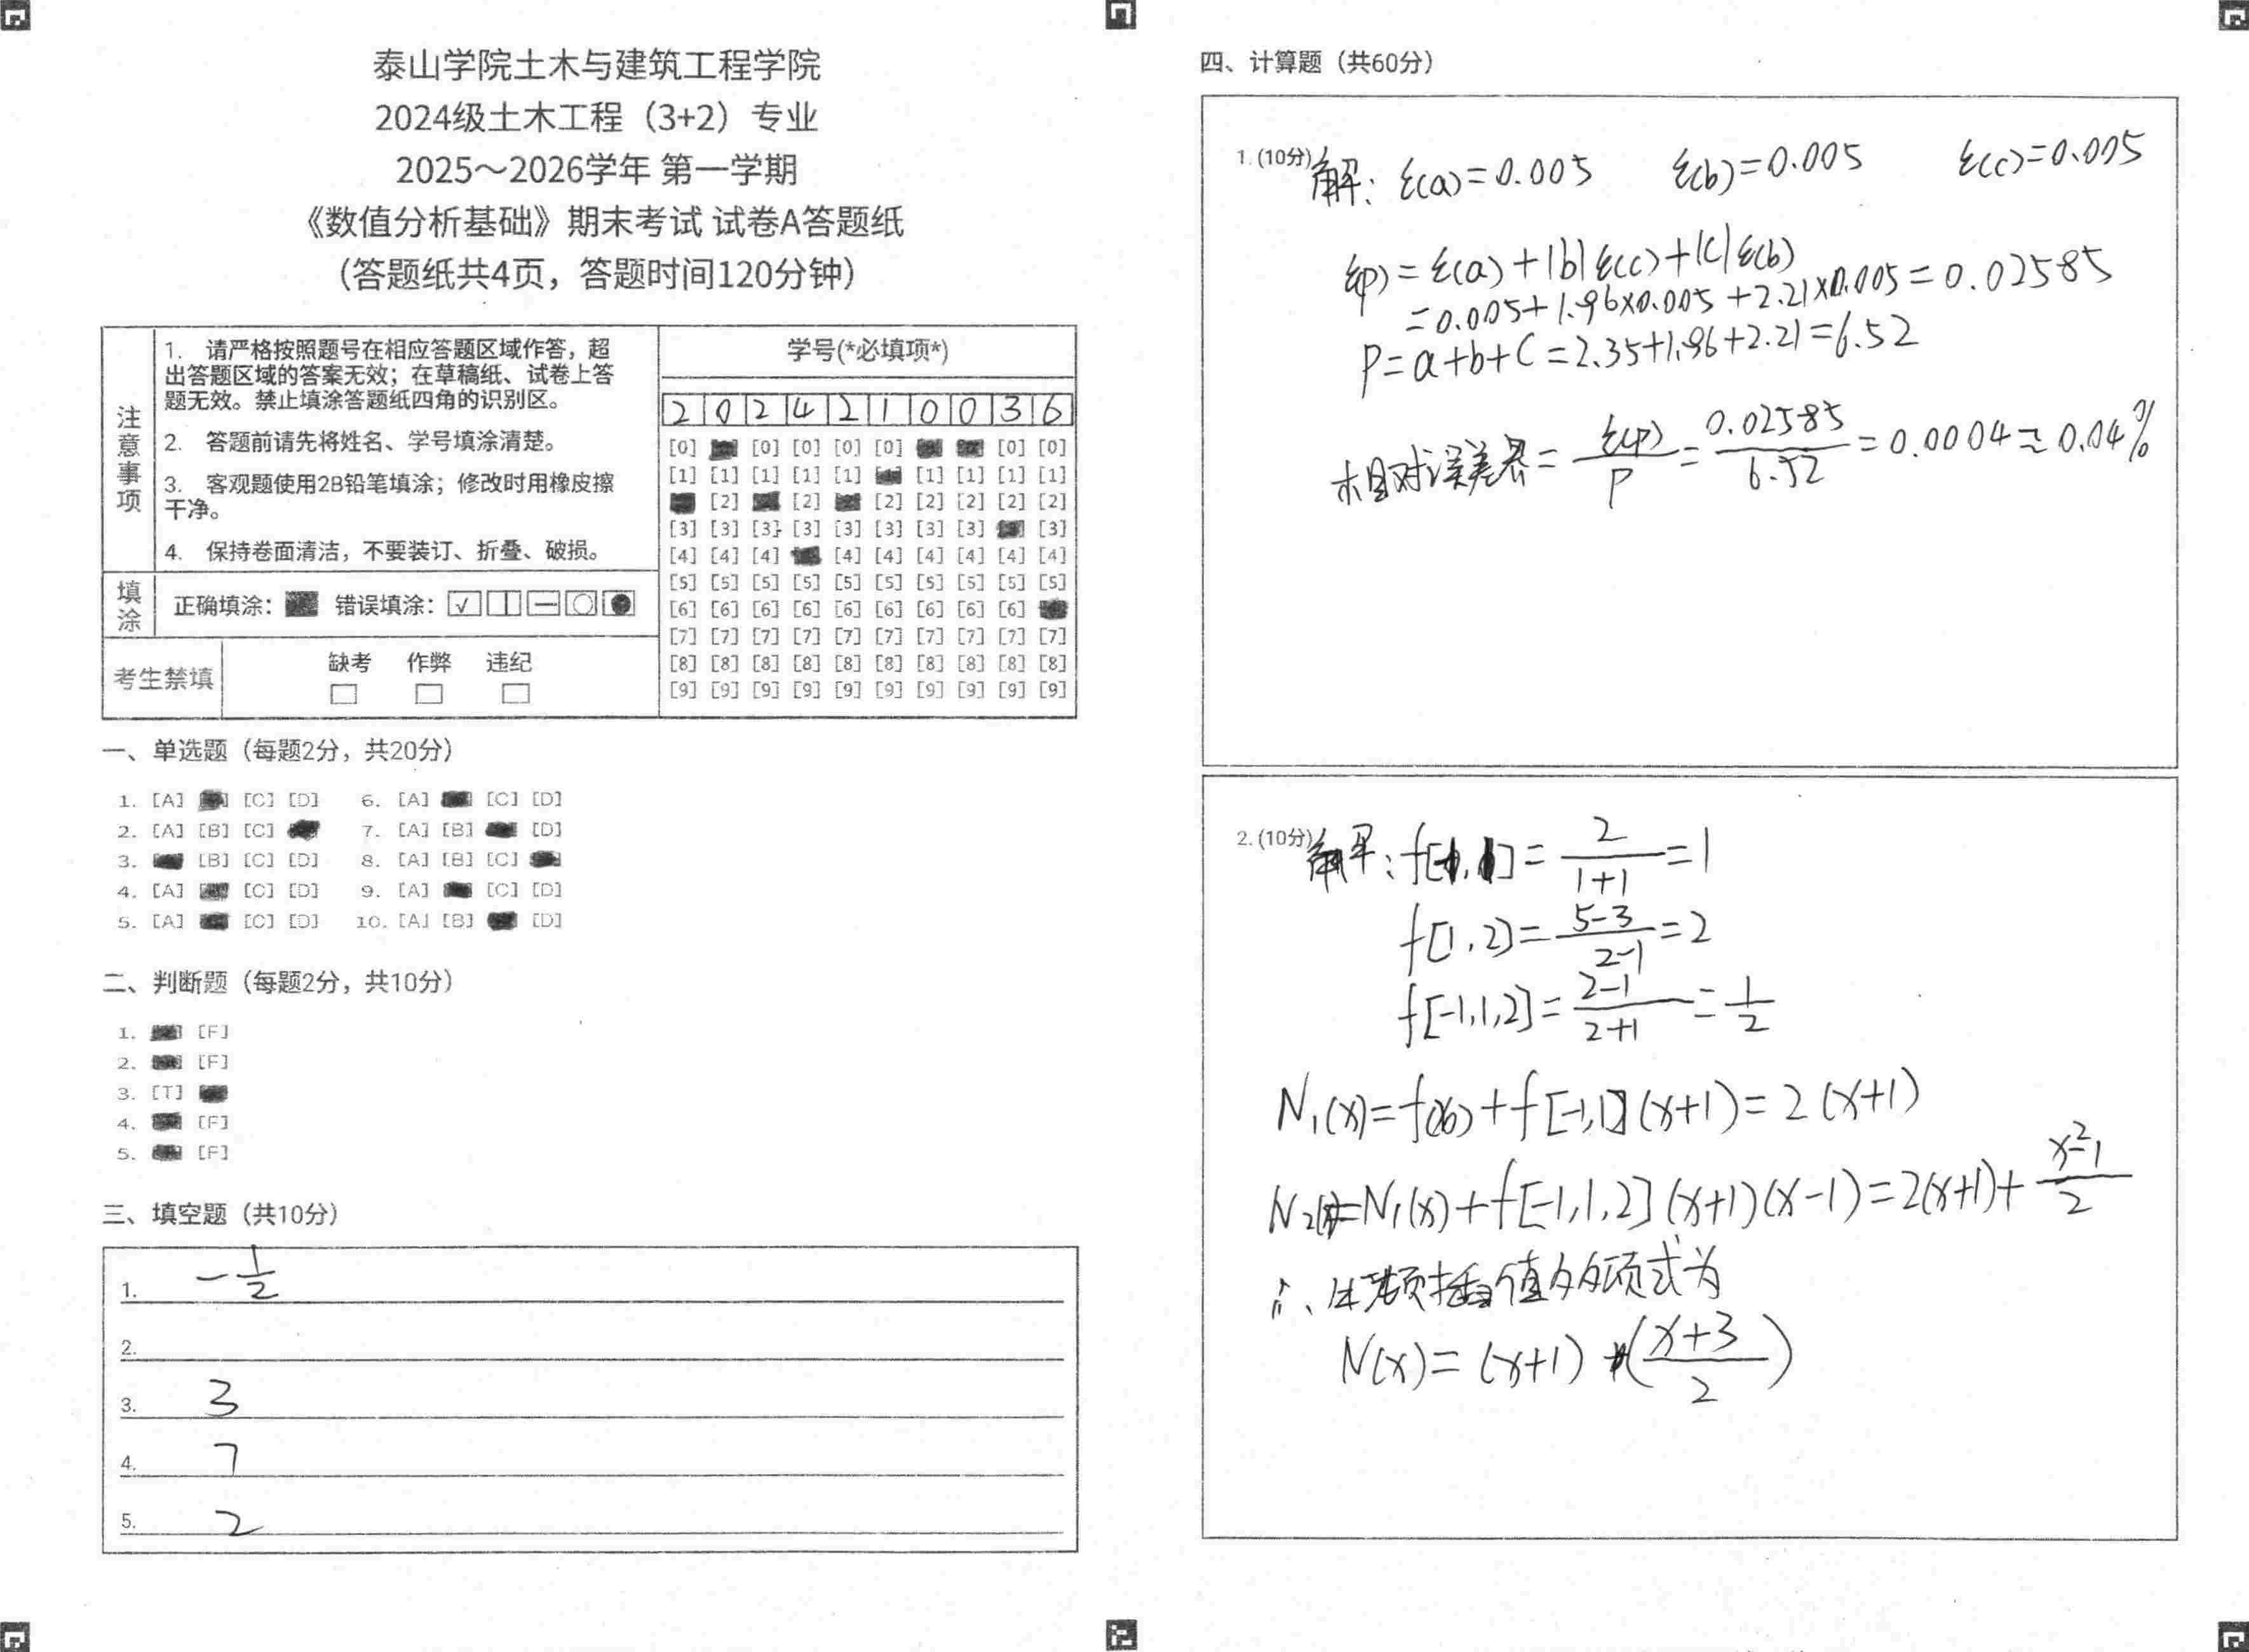 泰山学院土木与建筑工程学院
2024级土木工程（3+2）专业
2025～2026学年 第一学期
《数值分析基础》期末考试 试卷A答题纸
（答题纸共4页，答题时间120分钟）
注意事项
1. 请严格按照题号在相应答题区域作答，超
出答题区域的答案无效；在草稿纸、试卷上答
题无效。禁止填涂答题纸四角的识别区。
2. 答题前请先将姓名、学号填涂清楚。
3. 客观题使用2B铅笔填涂；修改时用橡皮擦
干净。
4. 保持卷面清洁，不要装订、折叠、破损。
填涂
正确填涂： 错误填涂：
考生禁填
缺考 作弊 违纪
学号(*必填项*)
2 0 2 4 2 1 0 0 3 6
[0] [0] [0] [0] [0] [0] [0]
[1] [1] [1] [1] [1] [1] [1] [1] [1]
[2] [2] [2] [2] [2] [2] [2]
[3] [3] [3] [3] [3] [3] [3] [3] [3]
[4] [4] [4] [4] [4] [4] [4] [4] [4]
[5] [5] [5] [5] [5] [5] [5] [5] [5] [5]
[6] [6] [6] [6] [6] [6] [6] [6] [6]
[7] [7] [7] [7] [7] [7] [7] [7] [7] [7]
[8] [8] [8] [8] [8] [8] [8] [8] [8] [8]
[9] [9] [9] [9] [9] [9] [9] [9] [9] [9]
一、单选题（每题2分，共20分）
1. [A] [C] [D] 6. [A] [C] [D]
2. [A] [B] [C] 7. [A] [B] [D]
3. [B] [C] [D] 8. [A] [B] [C]
4. [A] [C] [D] 9. [A] [C] [D]
5. [A] [C] [D] 10. [A] [B] [D]
二、判断题（每题2分，共10分）
1. [F]
2. [F]
3. [T]
4. [F]
5. [F]
三、填空题（共10分）
1. -1/2
2.
3. 3
4. 7
5. 2
四、计算题（共60分）
1. (10分) 解：ε(a)=0.005 ε(b)=0.005 ε(c)=0.005
ε(p)=ε(a)+|b|ε(c)+|c|ε(b)
=0.005+1.96×0.005+2.21×0.005=0.02585
P=a+b+c=2.35+1.96+2.21=6.52
相对误差界=ε(p)/P=0.02585/6.52=0.0004≈0.04%
2. (10分) 解：f[ , ]=2/(1+1)=1
f[1,2]=(5-3)/(2-1)=2
f[-1,1,2]=(2-1)/(2+1)=1/2
N₁(x)=f(x₀)+f[-1,1](x+1)=2(x+1)
N₂(x)=N₁(x)+f[-1,1,2](x+1)(x-1)=2(x+1)+(x²-1)/2
∴ 牛顿插值多项式为
N(x)=(x+1)((x+3)/2)